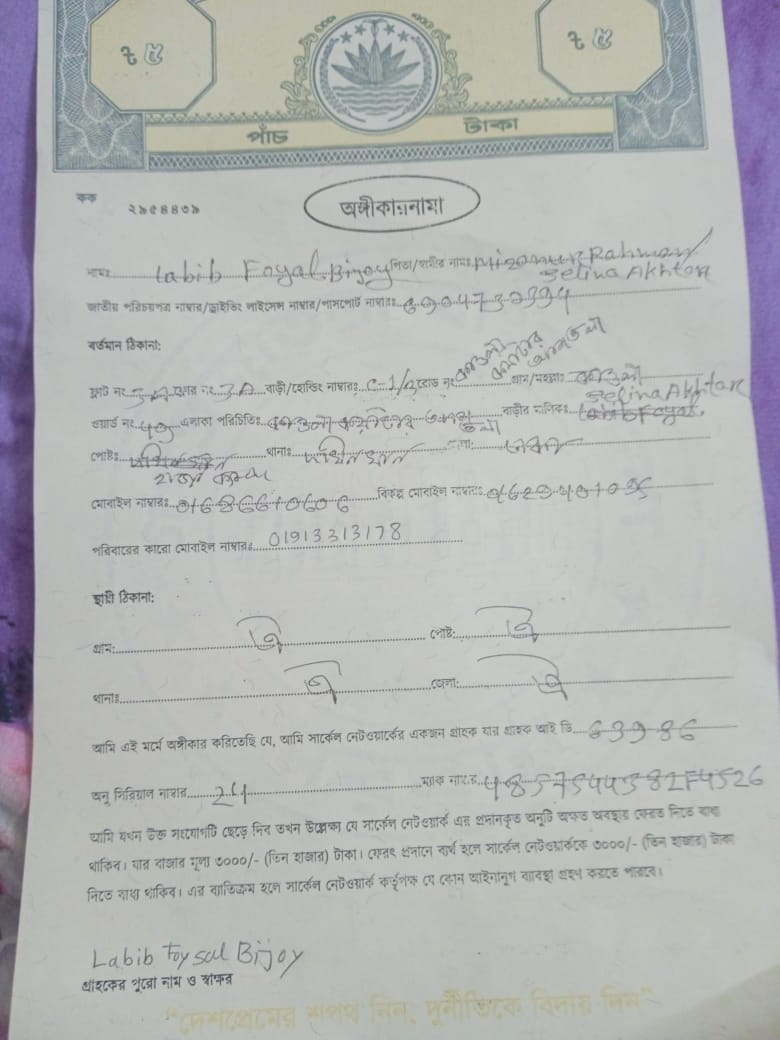 ৳ ৫ ৳ ৫
পাঁচ টাকা
কক ২৯৫৪৪৩৯
অঙ্গীকারনামা
নামঃ Labib Foysal Bijoy পিতা/স্বামীর নামঃ Mizanur Rahman
Selina Akhter
জাতীয় পরিচয়পত্র নাম্বার/ড্রাইভিং লাইসেন্স নাম্বার/পাসপোর্ট নাম্বারঃ
বর্তমান ঠিকানা:
ফ্লাট নং ফ্লোর নং 3A বাড়ী/হোল্ডিং নাম্বারঃ C-1/A রোড নং গ্রাম/মহল্লাঃ কাওলা
Selina Akhter
ওয়ার্ড নং 49 এলাকা পরিচিতিঃ কাওলা বাড়ীর মালিকঃ
পোষ্টঃ থানাঃ দক্ষিনখান জেলা: ঢাকা
মোবাইল নাম্বারঃ বিকল্প মোবাইল নাম্বারঃ
পরিবারের কারো মোবাইল নাম্বারঃ 01913313178
স্থায়ী ঠিকানা:
গ্রাম: ঐ পোষ্ট: ঐ
থানাঃ ঐ জেলা: ঐ
আমি এই মর্মে অঙ্গীকার করিতেছি যে, আমি সার্কেল নেটওয়ার্কের একজন গ্রাহক যার গ্রাহক আই ডি 63986
অনু সিরিয়াল নাম্বার ম্যাক নাম্বার 48575443821F4526
আমি যখন উক্ত সংযোগটি ছেড়ে দিব তখন উল্লেক্ষ্য যে সার্কেল নেটওয়ার্ক এর প্রদানকৃত অনুটি অক্ষত অবস্থায় ফেরত দিতে বাধ্য
থাকিব। যার বাজার মূল্য ৩০০০/- (তিন হাজার) টাকা। ফেরৎ প্রদানে ব্যর্থ হলে সার্কেল নেটওয়ার্ককে ৩০০০/- (তিন হাজার) টাকা
দিতে বাধ্য থাকিব। এর ব্যতিক্রম হলে সার্কেল নেটওয়ার্ক কর্তৃপক্ষ যে কোন আইনানুগ ব্যাবস্থা গ্রহণ করতে পারবে।
Labib Foysal Bijoy
গ্রাহকের পুরো নাম ও স্বাক্ষর
“দেশপ্রেমের শপথ নিন, দুর্নীতিকে বিদায় দিন”